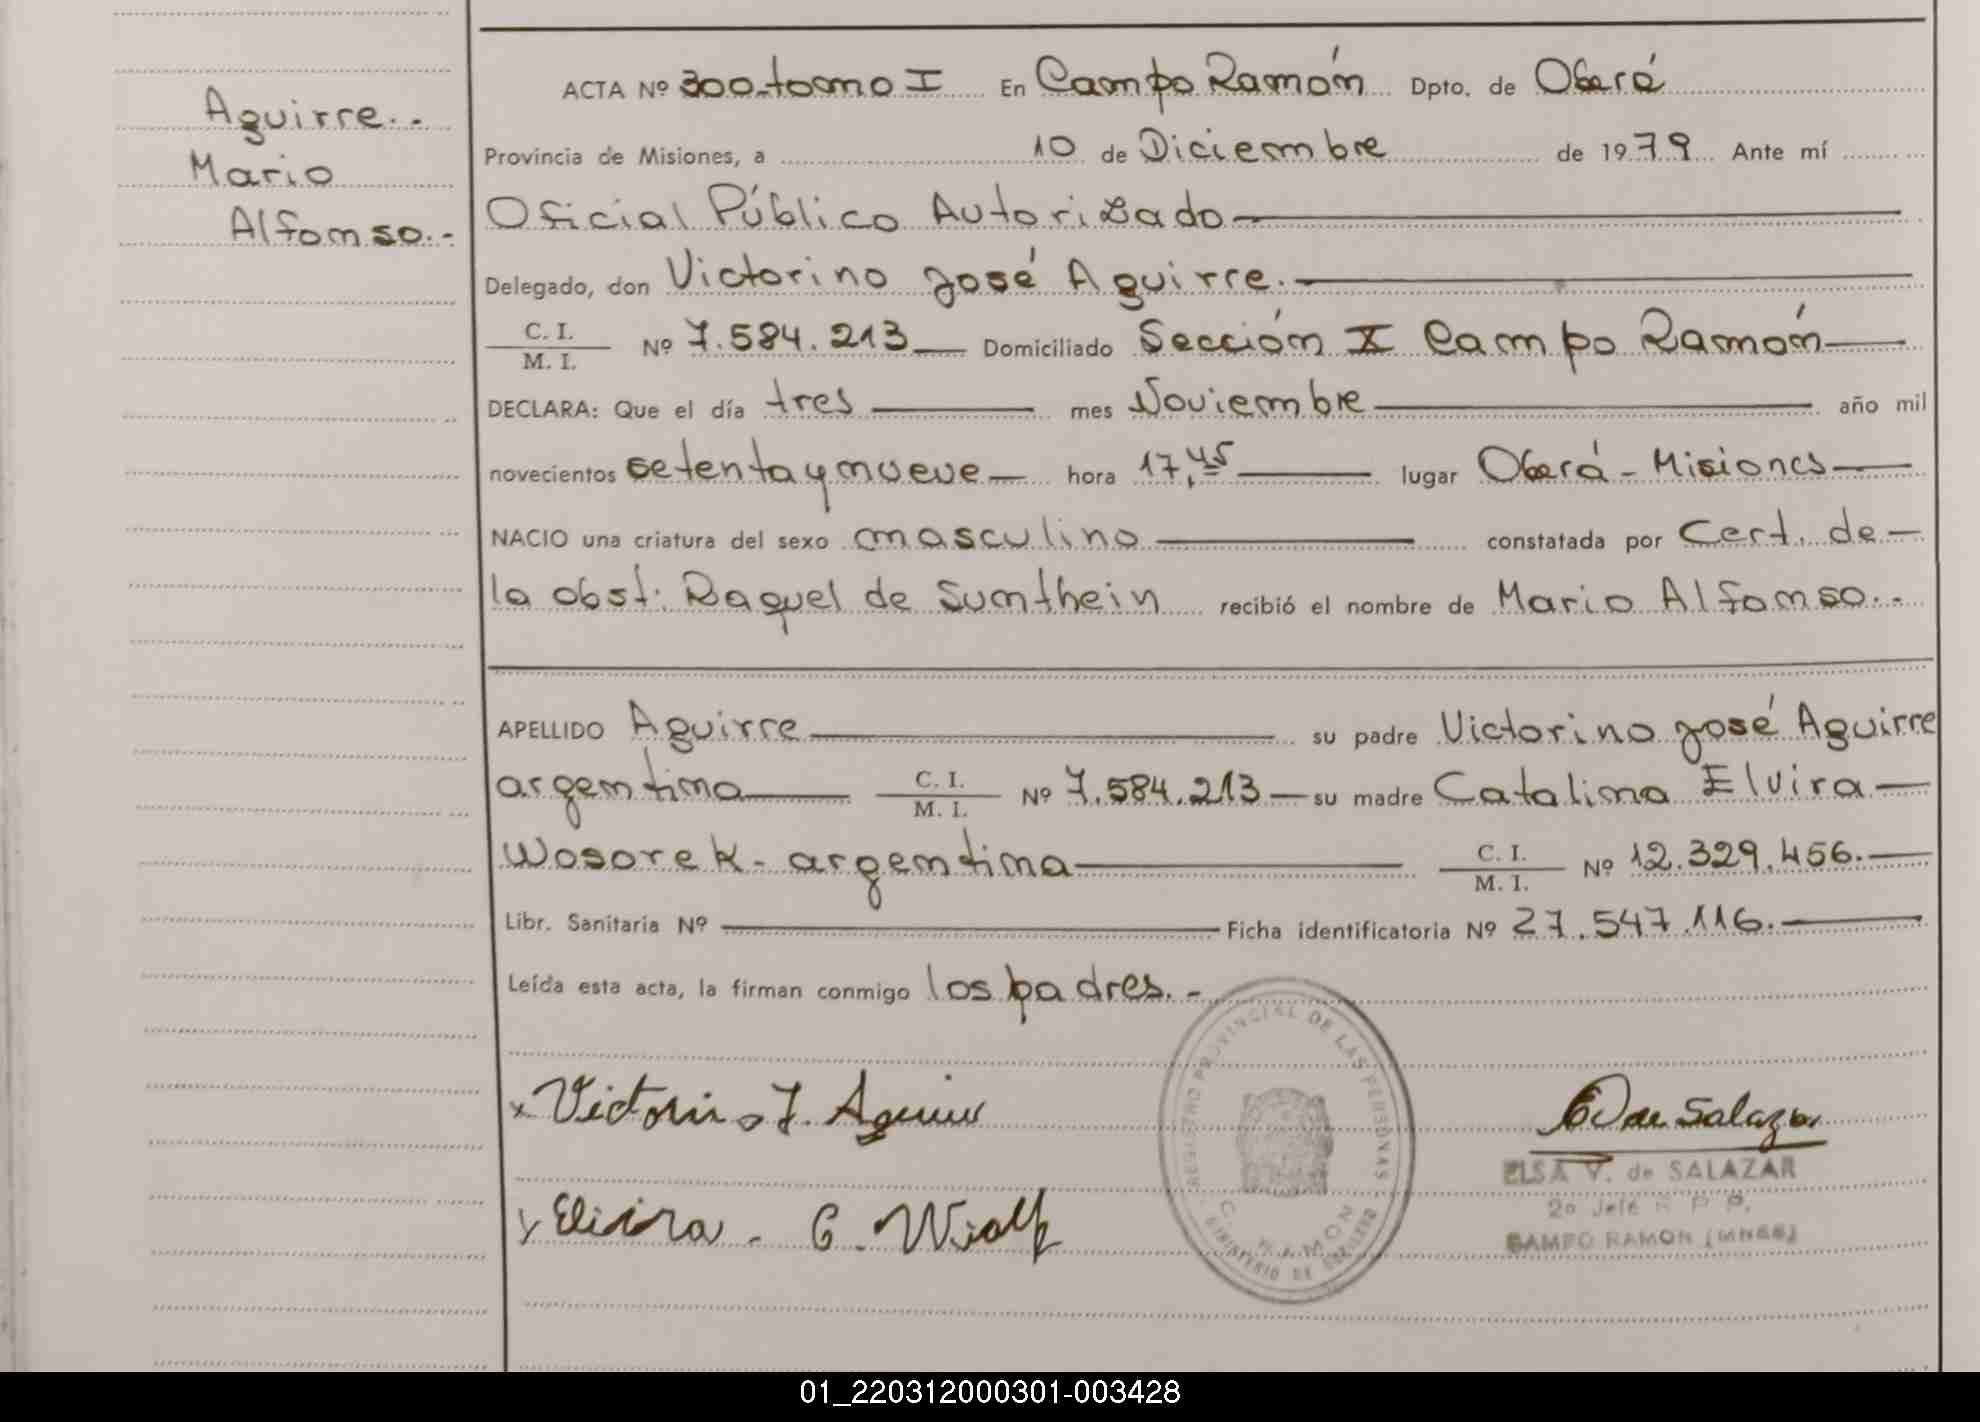 Aguirre.-
Mario
Alfonso.-
ACTA Nº 300-tomo I En Campo Ramón Dpto. de Oberá
Provincia de Misiones, a 10 de Diciembre de 1979 Ante mí
Oficial Público Autorizado
Delegado, don Victorino José Aguirre.
C. I. / M. I. Nº 7.584.213 Domiciliado Sección X Campo Ramón
DECLARA: Que el día tres mes Noviembre año mil
novecientos setenta y nueve hora 17,45 lugar Oberá - Misiones
NACIO una criatura del sexo masculino constatada por Cert. de
la obst. Raquel de Sumthein recibió el nombre de Mario Alfonso.-
APELLIDO Aguirre su padre Victorino José Aguirre
argentina C. I. / M. I. Nº 7.584.213 su madre Catalina Elvira
Wosorek - argentina C. I. / M. I. Nº 12.329.456.
Libr. Sanitaria Nº Ficha identificatoria Nº 27.547.116.
Leída esta acta, la firman conmigo los padres.-
REGISTRO PROVINCIAL DE LAS PERSONAS
C. RAMON
MINISTERIO DE GOBIERNO
x Victorino J. Aguirre
de Salazar
ELSA V. de SALAZAR
2o Jefe R P P.
CAMPO RAMON (MNES)
Elvira - C.
01_220312000301-003428